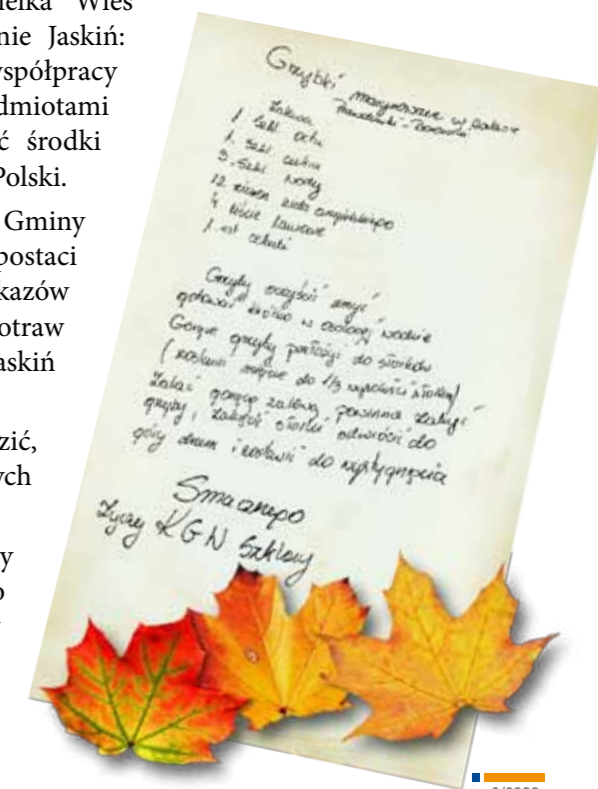 Wieś
nie Jaskiń:
współpracy
dmiotami
ć środki
Polski.
Gminy
postaci
kazów
otraw
askiń
zić,
ych
y
o
Grzybki marynowane w
Zalewa
1 szkl octu
1 szkl cukru
3 szkl wody
12 ziaren ziela angielskiego
4 liście laurowe
1 szt cebuli
Grzyby oczyścić umyć
gotować krótko w osolonej wodzie
Gorące grzyby przełożyć do słoików
(zostawić miejsce do 1/3 wysokości słoika)
Zalać gorącą zalewą, powinna zakryć
grzyby, zakręcić słoiki odwrócić do
góry dnem i zostawić do wystygnięcia
Smacznego
Życzy KGW Szklary